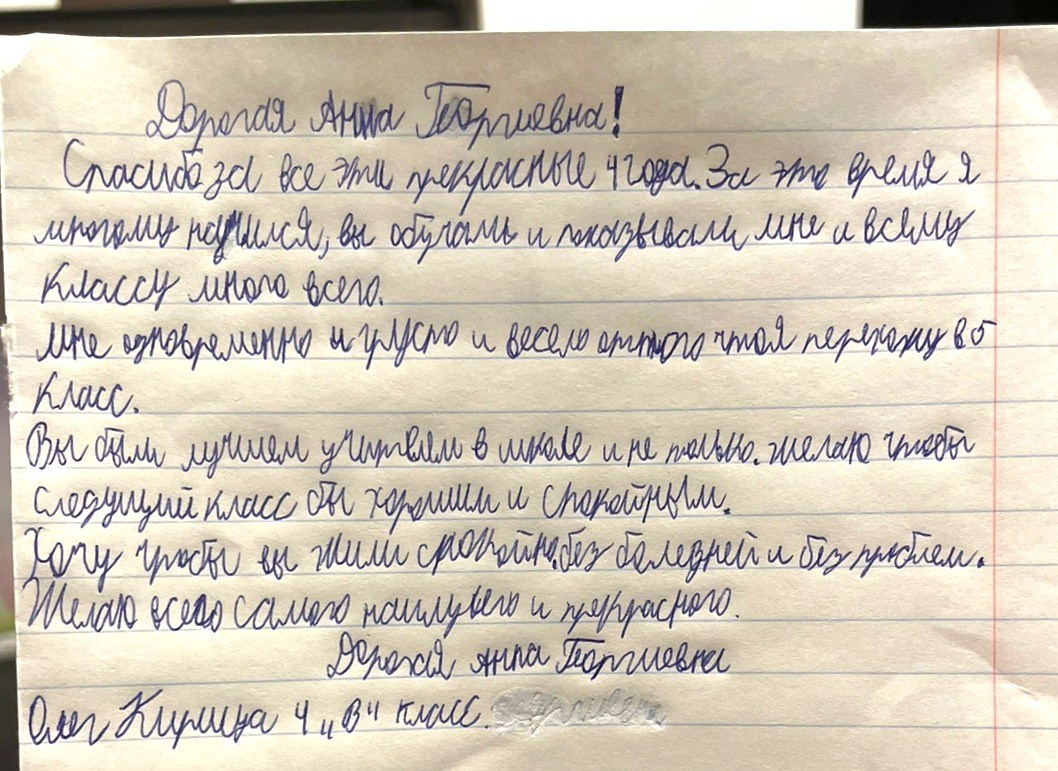 Дорогая Анна Георгиевна!
Спасибо за все эти прекрасные 4 года. За это время я
многому научился, вы обучали и показывали мне и всему
классу много всего.
Мне одновременно и грустно и весело оттого что я перехожу в 5
класс.
Вы были лучшем учителем в школе и не только. Желаю чтобы
следущий класс бы хорошим и спокойным.
Хочу чтобы вы жили спокойно, без болезней и без проблем.
Желаю всего самого наилучего и прекрасного.
Дорогая Анна Георгиевна
Олег Кирица 4 „В" класс.